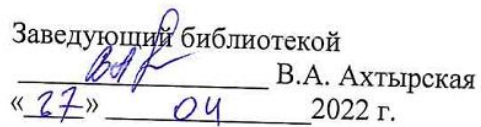 Заведующий библиотекой
В.А. Ахтырская
«27» 04 2022 г.